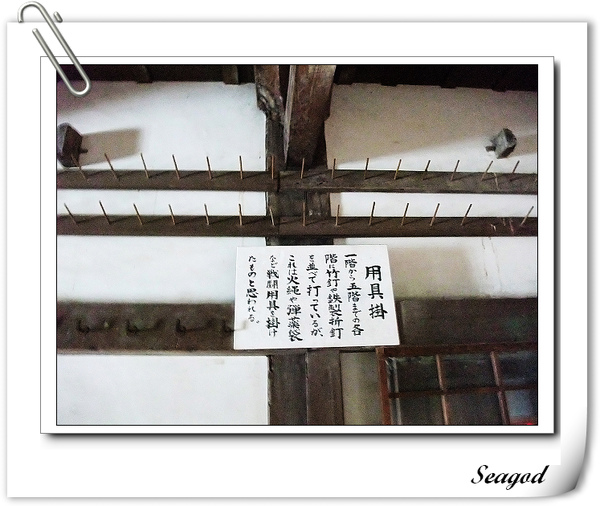 用具掛
一階から五階までの各
階に竹釘や鉄製折釘
を並べて打っているが、
これは火縄や弾薬袋
など戦闘用具を掛け
たものと思われる。
Seagod